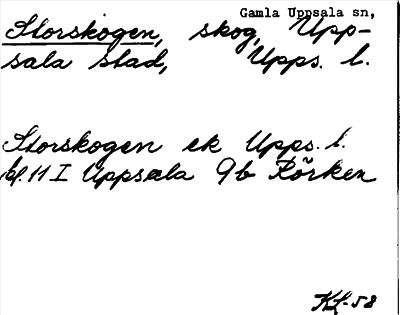 Gamla Uppsala sn,
Storskogen, skog, Upp-
sala stad, Upps. l.
Storskogen ek Upps. l.
bl. 11 I Uppsala 9b Rörken
KL-58